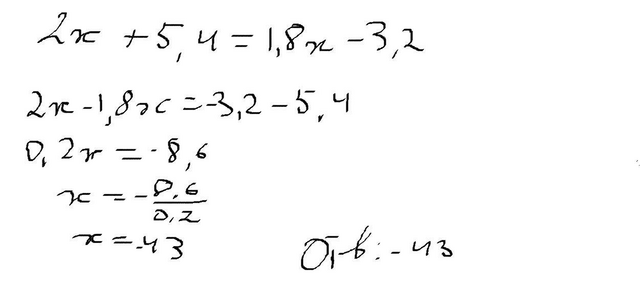 2x + 5,4 = 1,8x - 3,2
2x - 1,8x = -3,2 - 5,4
0,2x = -8,6
x = -8,6/0,2
x = -43 Отв: -43